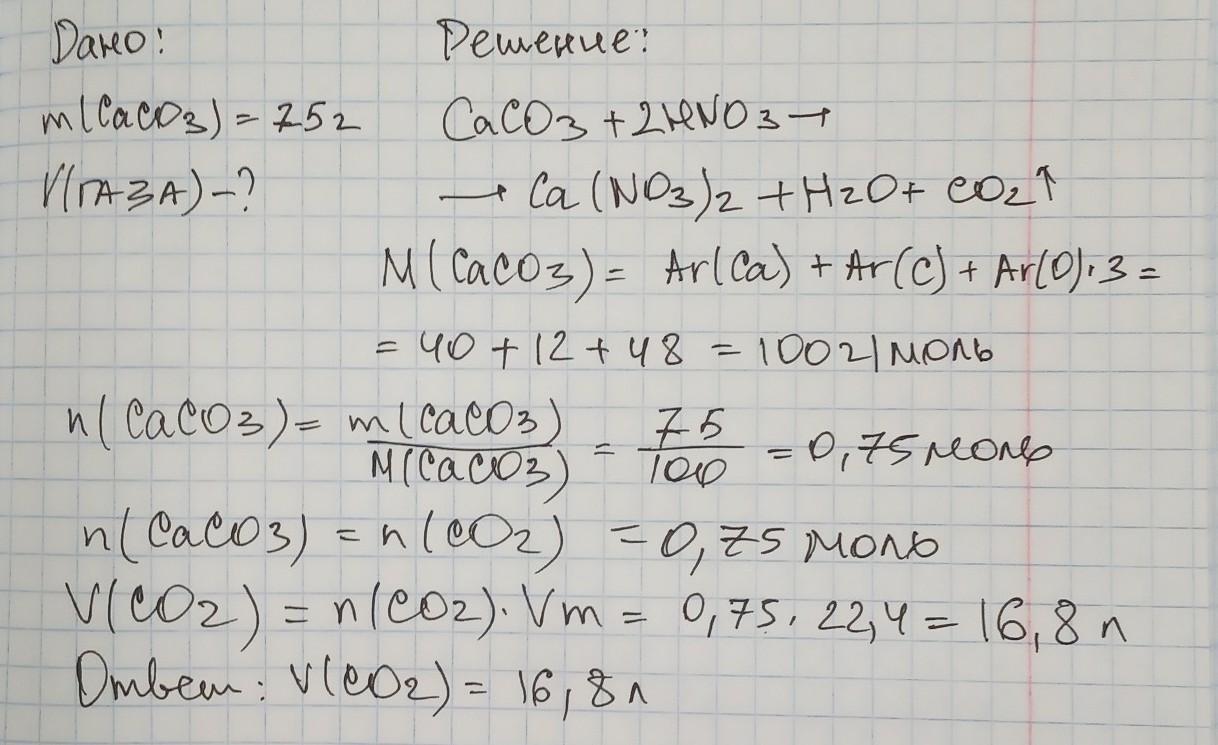 Дано: Решение:
m(CaCO3) = 75г CaCO3 + 2HNO3 →
V(ГАЗА) - ? → Ca(NO3)2 + H2O + CO2↑
M(CaCO3) = Ar(Ca) + Ar(C) + Ar(O)·3 =
= 40 + 12 + 48 = 100г/моль
n(CaCO3) = m(CaCO3)/M(CaCO3) = 75/100 = 0,75 моль
n(CaCO3) = n(CO2) = 0,75 моль
V(CO2) = n(CO2)·Vm = 0,75·22,4 = 16,8 л
Ответ: V(CO2) = 16,8 л